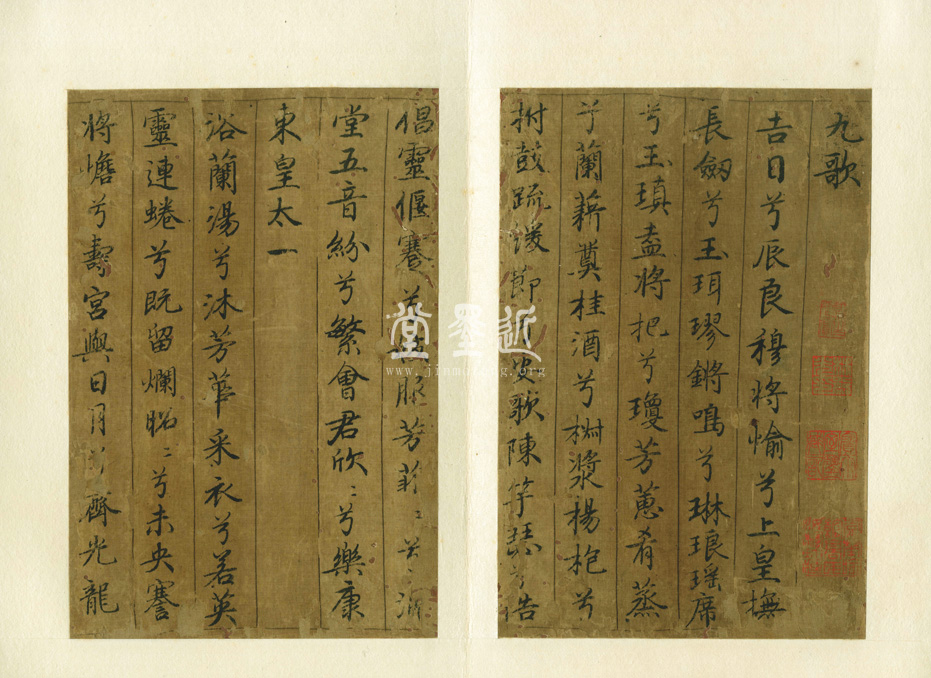 九歌
吉日兮辰良穆將愉兮上皇撫
長劔兮玉珥璆鏘鳴兮琳琅瑶席
兮玉瑱盍將把兮瓊芳蕙肴蒸
兮蘭藉奠桂酒兮椒漿楊枹兮
拊鼓疏緩節兮安歌陳竽瑟兮浩
倡靈偃蹇兮服芳菲〻兮滿
堂五音紛兮繁會君欣〻兮樂康
東皇太一
浴蘭湯兮沐芳華采衣兮若英
靈連蜷兮既留爛昭〻兮未央謇
將憺兮壽宮與日月兮齊光龍
近墨堂
www.jinmotang.org